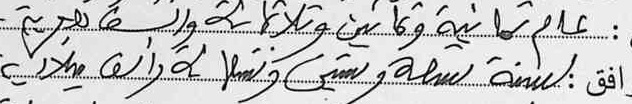 : عام ثمانية وثمانين وثلاثمائة وألف هجرية
افق : لسنة تسعة وستين وتسعمائة وألف ميلادية